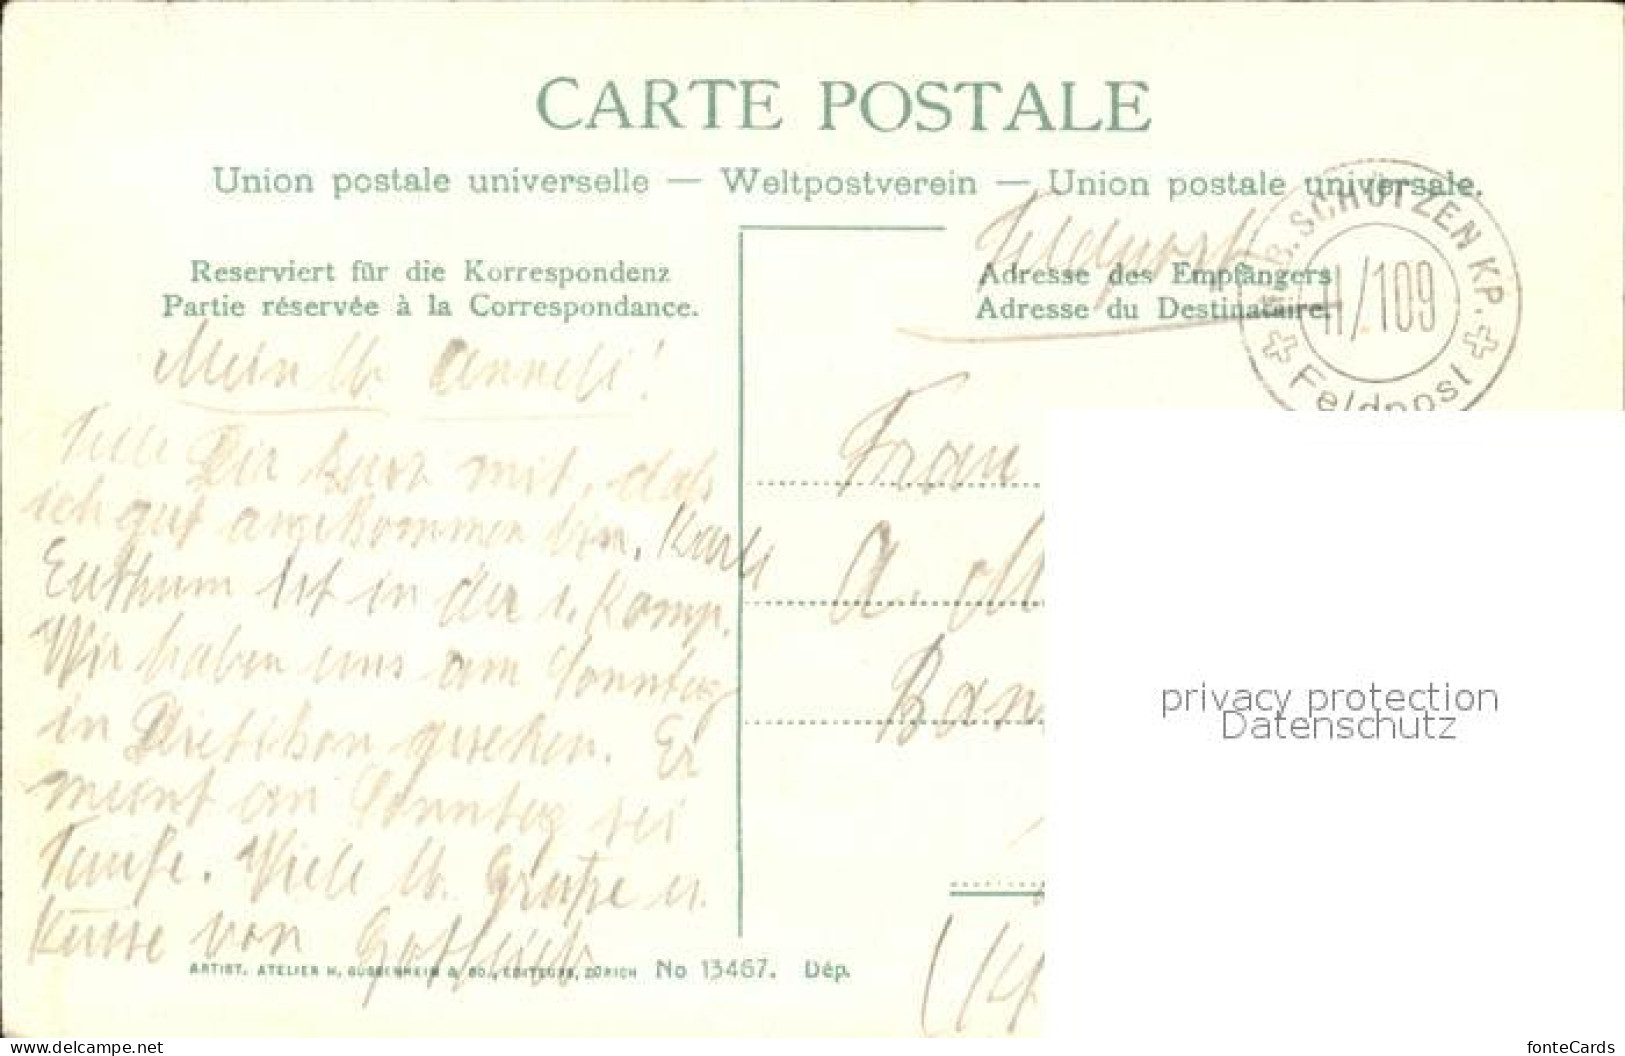 CARTE POSTALE
Union postale universelle — Weltpostverein — Union postale universale.
Reserviert für die Korrespondenz
Partie réservée à la Correspondance.
Mein lb. Anneli!
Teile Dir kurz mit, daß
ich gut angekommen bin. Karli
Enthum ist in der 1. Komp.
Wir haben uns am Sonntag
in Dietikon gesehen. Er
meint am Sonntag sei
Taufe. Viele lb. Grüße u.
Küsse von Gottlieb
ARTIST. ATELIER H. GUGGENHEIM & CO., EDITEURS, ZÜRICH No 13467. Dép.
Feldpost
Adresse des Empfängers
Adresse du Destinataire.
B. SCHÜTZEN KP.
II/109
Feldpost
Frau
A.
Ban
privacy protection
Datenschutz
www.delcampe.net
fonteCards